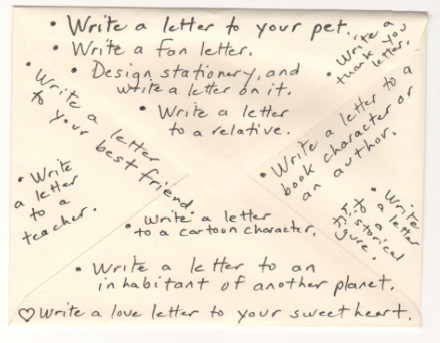 • Write a letter to your pet.
• Write a fan letter.
• Design stationery, and
write a letter on it.
• Write a letter
to a relative.
• Write a
thank you
letter.
• Write a letter
to your
best friend.
• Write a letter to a
book character or
an author.
• Write
a letter
to a
teacher.
• Write a letter
to a cartoon character.
• Write
a letter
to a
historical
figure.
• Write a letter to an
inhabitant of another planet.
♡ Write a love letter to your sweetheart.